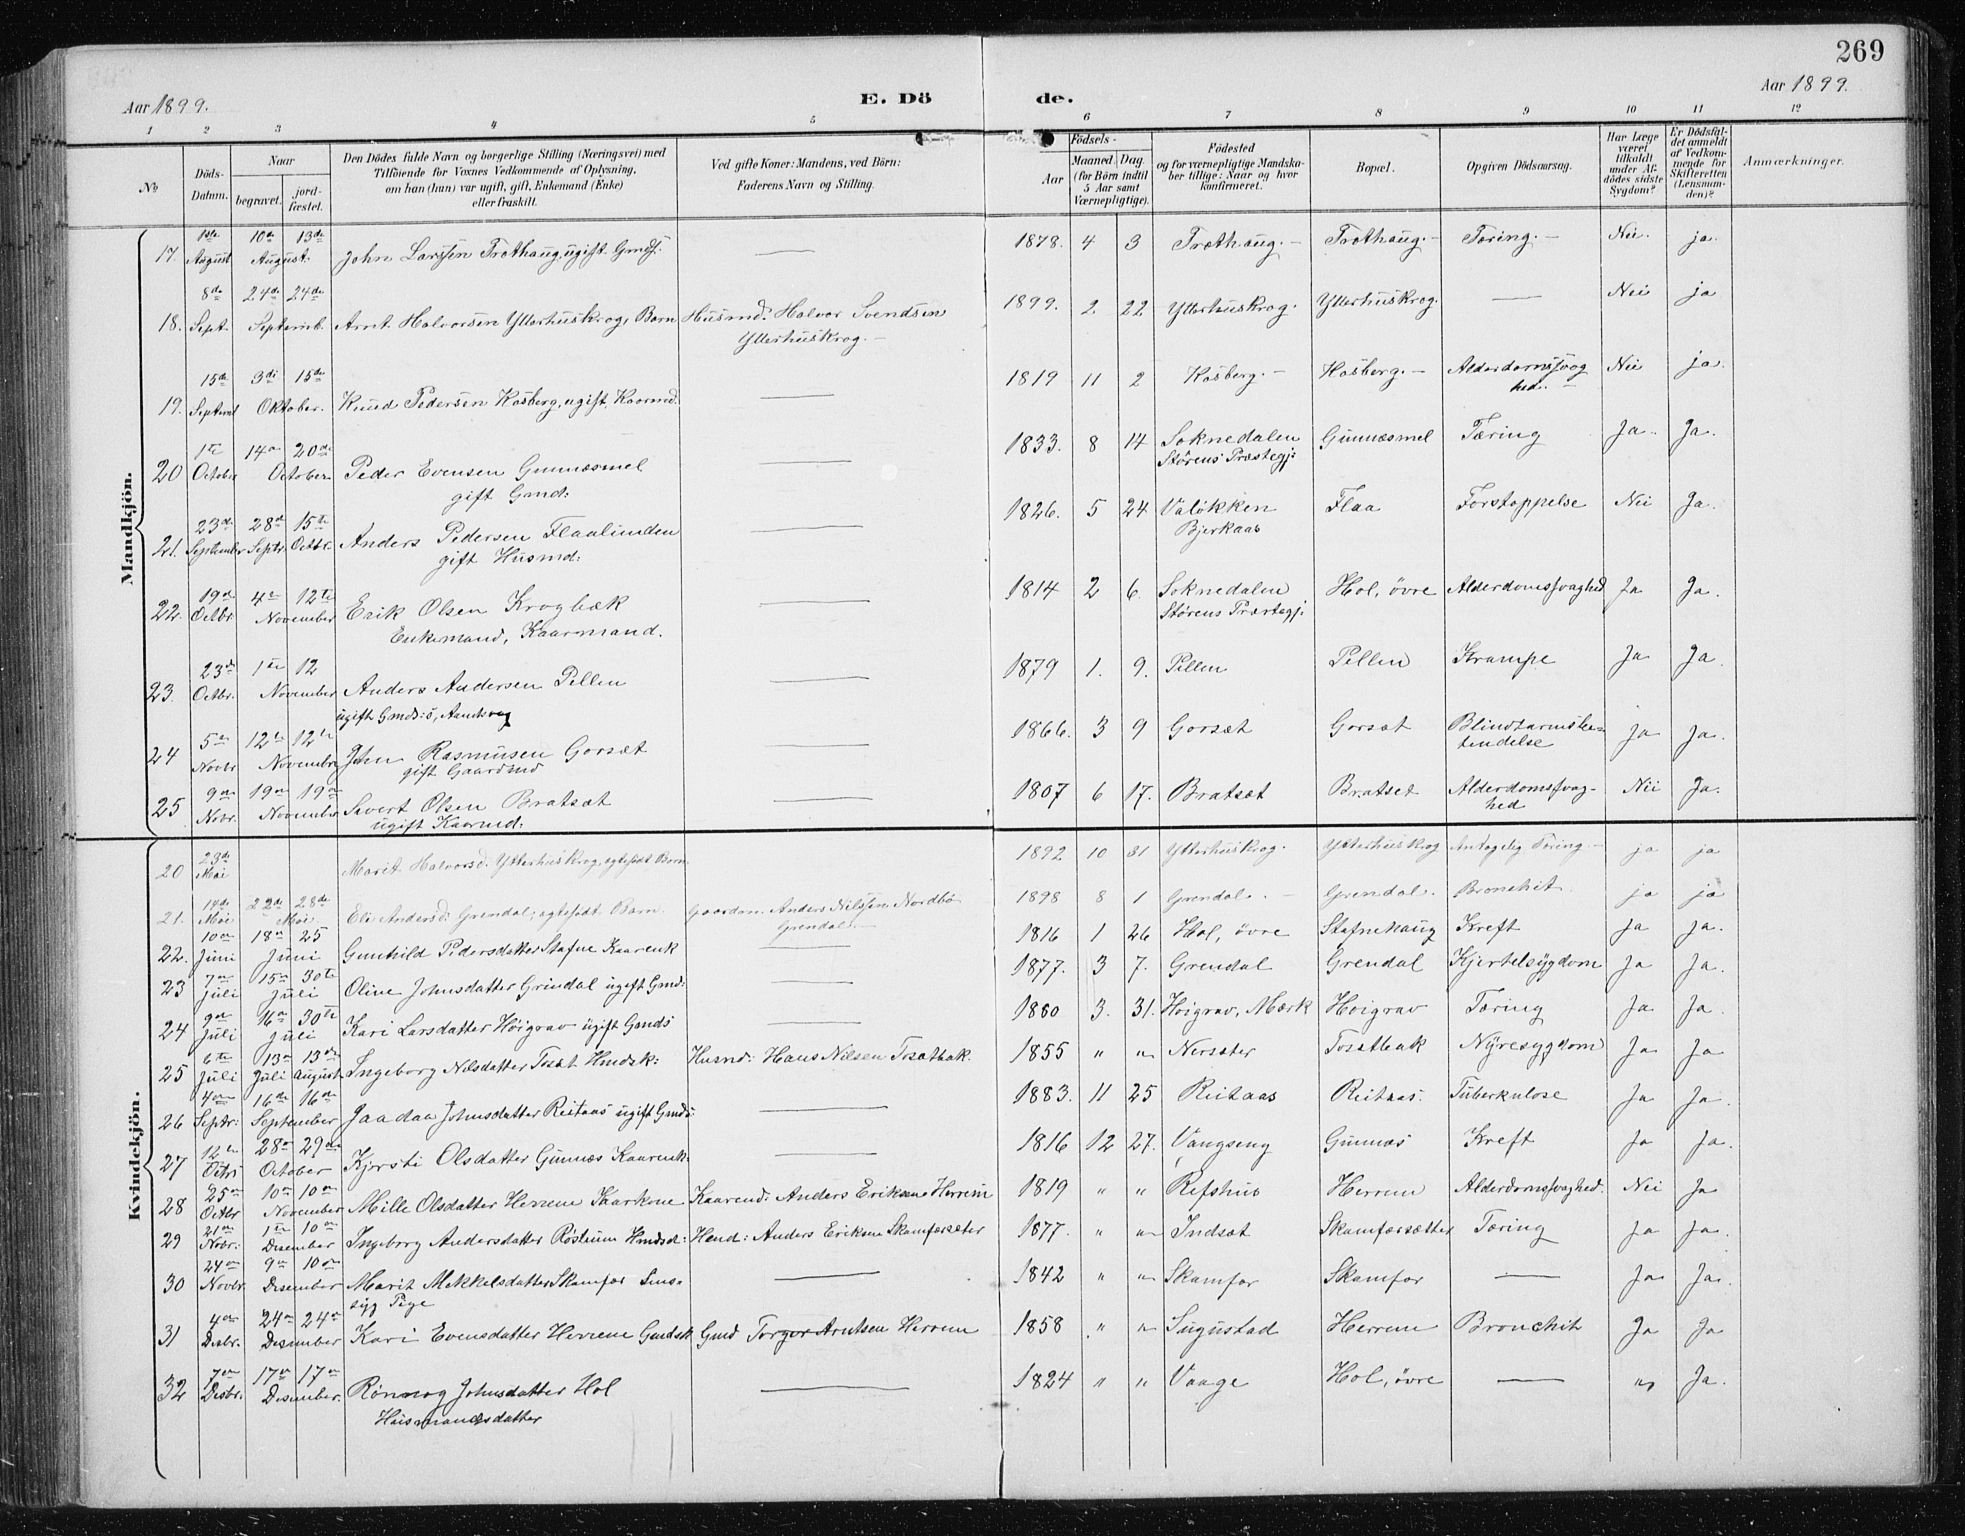 269
Aar 1899. E. Dö de. Aar 1899.
1 2 3 4 5 6 7 8 9 10 11 12
No Döds-Datum. Naar begravet. jordfæstet. Den Dödes fulde Navn og borgerlige Stilling (Næringsvei) med Tilföiende for Voxnes Vedkommende af Oplysning, om han (hun) var ugift, gift, Enkemand (Enke) eller fraskilt. Ved gifte Koner: Mandens, ved Börn: Faderens Navn og Stilling. Födsels- Aar Maaned. Dag. (for Börn indtil 5 Aar samt Værnepligtige). Födested og for værnepligtige Mandskaber tillige: Naar og hvor konfirmeret. Bopæl. Opgiven Dödsaarsag. Har Læge været tilkaldt under Afdödes sidste Sygdom? Er Dödsfaldet anmeldt af Vedkommende for Skifteretten (Lensmanden)? Anmærkninger.
Mandkjön.
17. 1ste August 10de 13de August. John Larssen Trøthaug, ugift Gmds. — 1878. 4 3 Trøthaug. — Trøthaug. — Tæring. — Nei. ja.
18. 8de Sept. 24de 24de Septemb. Arnt Halvorsen Ytterhuskrog, Barn Husmd. Halvor Svendsen Ytterhuskrog. — 1899. 2. 22 Ytterhuskrog. Ytterhuskrog. — Nei ja
19. 15de Septemb 3di 15de Oktober. Knud Pedersen Kosberg, ugift Kaarmd. — 1819 11 2 Kosberg. — Kosberg. — Alderdomssvaghed. — Nei ja.
20 1te October 14de 20de October Peder Evensen Gunnæsmel gift Gmd: — 1833. 8 14 Soknedalen Störens Præstegj: Gunnæsmel Tæring Ja. Ja.
21. 23de September 28de Septr. 15te Octbr. Anders Pedersen Flaalunden gift Husmd: — 1826. 5 24 Valökken Bjerkaas Flaa Forstoppelse Nei Ja.
22. 19de Octbr. 4de 12te November Erik Olsen Krogbæk Enkemand, Kaarmand. — 1814 2 6. Soknedalen Störens Præstegj. Hol, övre Alderdomssvaghed Ja Ja.
23. 23de Octbr. 1te 12 November Anders Andersen Pellen ugift Gmds:s, — 1879 1. 9. Pellen Pellen Krampe Ja Ja
24 5te Novbr 12te 12te November John Rasmusen Gorsæt gift Gaardmd — 1866. 3 9 Gorsæt Gorsæt Blindtarmsbetændelse Ja Ja.
25 9de Novbr. 19de 19de November Sivert Olsen Bratsæt ugift Kaarmd: — 1807 6 17. Bratsæt Bratset Alderdomssvaghed Nei Ja.
Kvindekjön.
20 23de Mai Marit Halvorsd. Ytterhuskrog, egtefödt Barn 1892 10 31 Ytterhuskrog. Ytterhuskrog Antagelig Tæring. — ja ja
21. 14de Mai 22de 28de Mai. Eli Andersd: Grendal, egtefödt Barn. Gaardm. Anders Nilssen Nordbö Grendal. 1898 8 1 Grendal. — Grendal. Bronchit. ja ja
22. 10de Juni 18de 25 Juni Gunhild Pedersdatter Stafne Kaarenk — 1816 1 26 Hol, övre Stafnehaug Kreft Ja Ja.
23 7de Juli 15de 30te Juli Oline Johnsdatter Grindal ugift Gmd: — 1877. 3 7. Grendal Grendal Kjertelsygdom Ja Ja.
24 9de Juli 16de 30te Juli Kari Larsdatter Höigrav ugift Gmds — 1880 3. 31. Höigrav, Mærk Höigrav Tæring Ja Ja.
25 6te Juli 13de Juli 13de August Ingeborg Nilsdatter Tosæt Hmdsk: Husmd: Hans Nilsen Tosætbak. 1855 " " Nersæter Tosætbak Nyresygdom Ja Ja
26 4de Septr: 16de 16de September Jaadaa Johnsdatter Reitaas ugift Gmds: — 1883. 11 25 Reitaas Reitaas. Tuberkulose Ja Ja.
27 12te Octr 28de 29de October Kjersti Olsdatter Gunnæs Kaarenk. — 1816 12 27. Vangseng Gunnæs Kreft Ja Ja.
28 25de Octbr 10de 10de November Mille Olsdatter Herrem Kaarkone Kaarend: Anders Eriksen Herrem 1819 " " Refshus Herrem Alderdomssvaghed. Nei Ja
29 21de Novbr: 1te 10de Desember Ingeborg Andersdatter Röstum Hmdsd: Hend: Anders Eriksen Skamfersæter 1877. " " Indsæt Skamfersætter Tæring Ja Ja.
30 24de Novbr 9de 10de Desember Marit Mekkelsdatter Skamfer Sinssyg Pige — 1842 " " Skamfer Skamfer — Ja Ja.
31 4de Desbr. 24de 24de Desember Kari Evensdatter Herrem Gmdsk Gmd Torger Arntsen Herrem 1858 " " Sugustad Herrem Bronchit Ja Ja
32 7de Desbr. 17de 17de Desember. Rönnog Johnsdatter Hol Huismandsdatter — 1824 " " Vaage Hol, övre — " Ja.